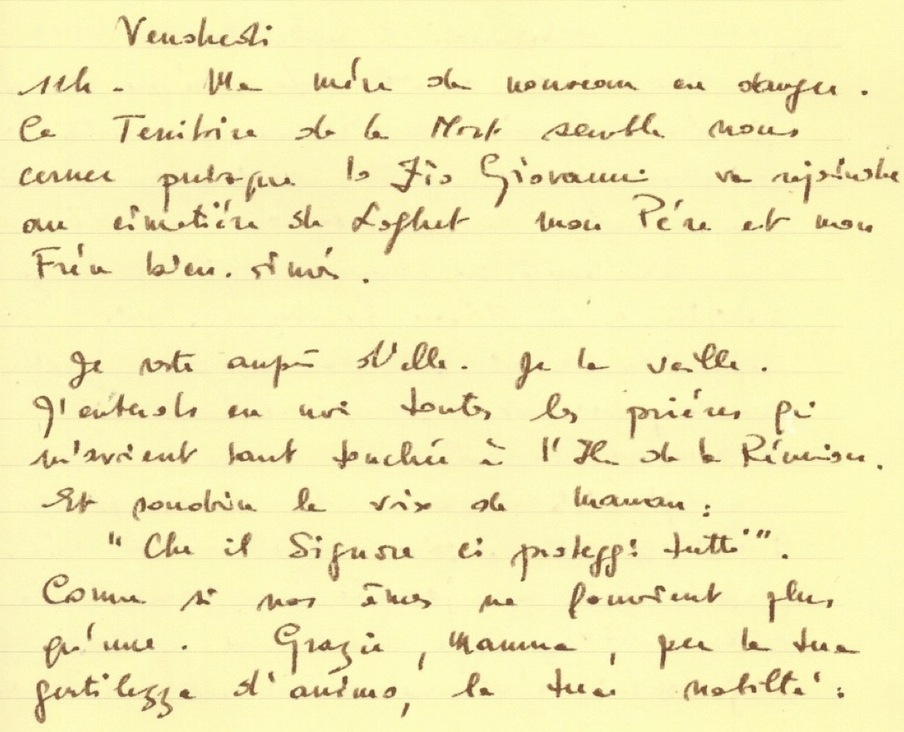 Vendredi
11h. Ma mère de nouveau en danger.
Le Territoire de la Mort semble nous
cerner puisque lo Zio Giovanni va rejoindre
au cimetière de Laghet mon Père et mon
Frère bien-aimés.
Je reste auprès d'elle. Je la veille.
J'entends en moi toutes les prières qui
m'avaient tant touchée à l'Ile de la Réunion.
Et soudain la voix de maman :
"Che il Signore ci proteggi tutti".
Comme si nos âmes ne formaient plus
qu'une. Grazie, Mamma, per la tua
gentilezza d'animo, la tua nobiltà :